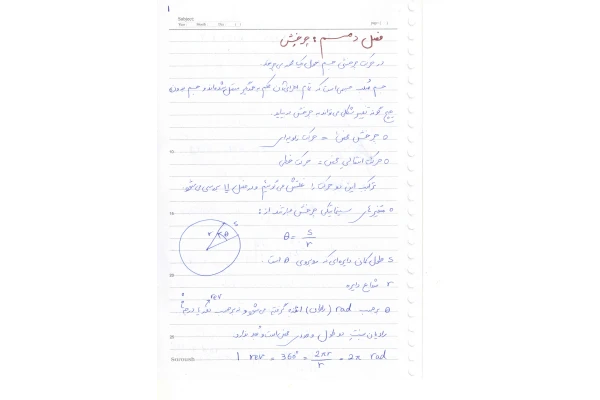 1
Subject:
فصل دهم: چرخش
در حرکت چرخشی جسم حول یک محور می‌چرخد
جسم صلب جسمی است که تمام اجزای آن به هم متصل شده‌اند و جسم بدون
هیچ گونه تغییر شکلی می‌تواند چرخش نماید.
چرخش محض: حرکت زاویه‌ای
حرکت انتقالی محض: حرکت خطی
ترکیب این دو حرکت را غلتش می‌گوییم و در فصل ۱۱ بررسی می‌شود
متغیرهای سینماتیکی چرخش عبارتند از:
r θ s
θ = s/r
s طول کمان دایره‌ای که روبروی θ است.
r شعاع دایره
rev
θ بر حسب rad (رادیان) اندازه گرفته می‌شود و بر حسب
رادیان نسبت دو طول و عددی محض است و بعد ندارد.
1 rev = 360° = 2πr/r = 2π rad